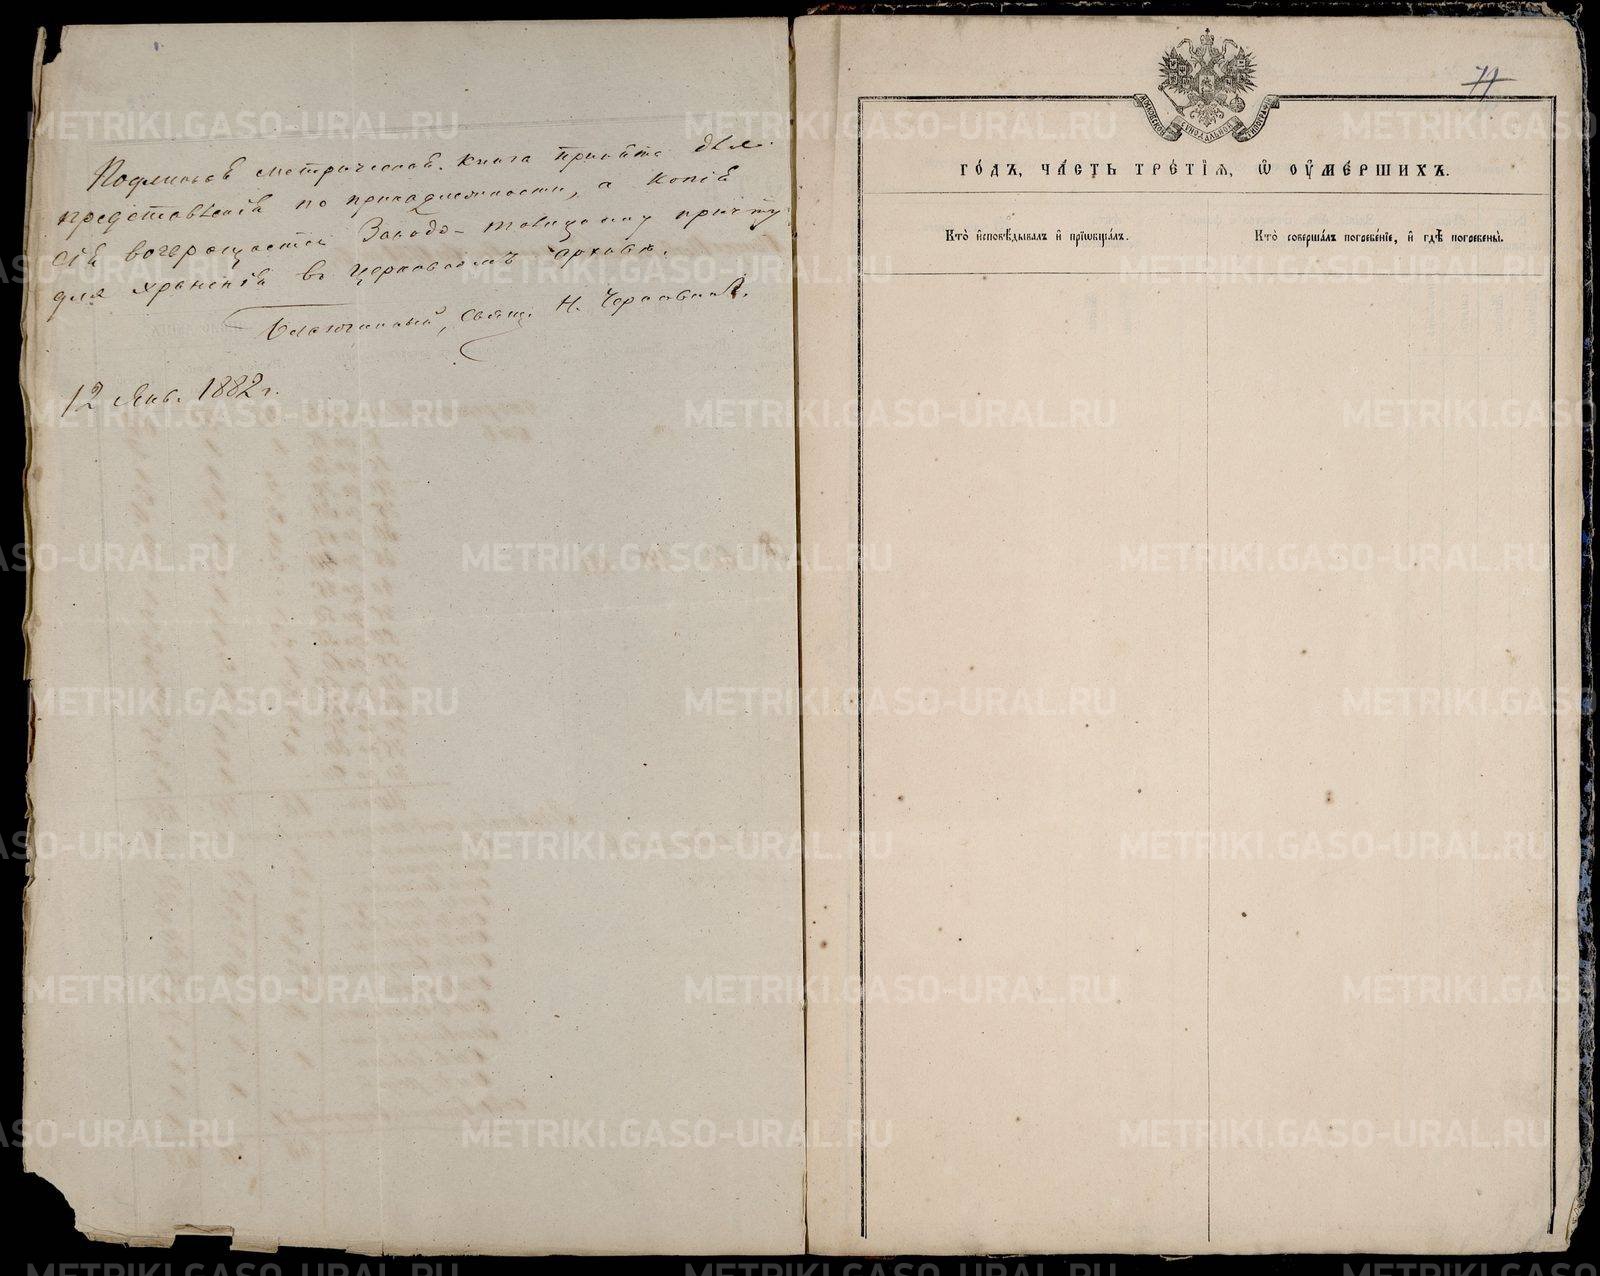 Подлинная метрическая книга принята для
представленія по принадлежности, а копія
сія возвращается Заводо- причту
для храненія въ церковномъ архивѣ.
Благочинный, Свящ. Н.
12 Янв. 1882 г.
71
МОСКОВСКОЙ СѴНОДАЛЬНОЙ ТИПОГРАФІИ
ГО́ДЪ, ЧА́СТЬ ТРЕ́ТІѦ, Ѽ ОУ҆МЕ́РШИХЪ.
Кто̀ и҆сповѣ́дывалъ и҆ прїѡбща́лъ.
Кто̀ соверша́лъ погребе́нїе, и҆ гдѣ̀ погребены̀.
METRIKI.GASO-URAL.RU